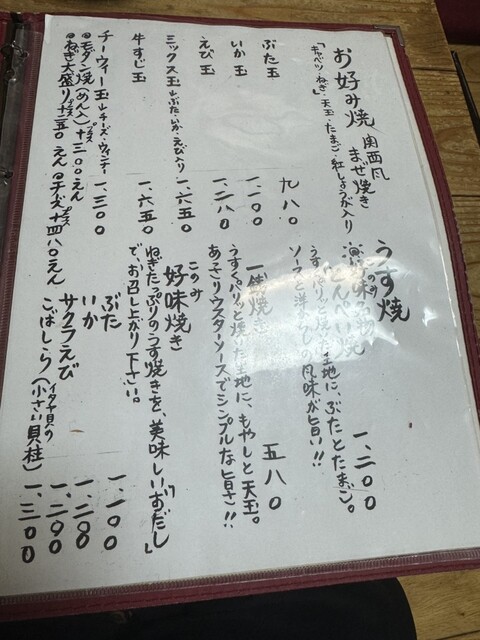 お好み焼 関西風 まぜ焼き
「キャベツ・ねぎ・天玉・たまご・紅しょうが入り」
ぶた玉 九八〇
いか玉 一、一〇〇
えび玉 一、二八〇
ミックス玉 ↳ぶた・いか・えび入り 一、六五〇
牛すじ玉 一、六五〇
チーウィー玉 ↳チーズ・ウィンナー 一、三〇〇
◎モダン焼(めん入)プラス+三〇〇えん
◎ねぎ大盛りプラス+三五〇えん ◎チーズプラス+四八〇えん
うす焼
うすくパリッと焼いた生地に、ぶたとたまご。
ソースと洋がらしの風味が旨い!! 一、二〇〇
一銭焼き 五八〇
うすくパリッと焼いた生地に、もやしと天玉。
あっさりウスターソースでシンプルな旨さ!!
好味焼き このみ
ねぎたっぷりのうす焼きを、美味しい「おだし」
で、お召し上がり下さい。
ぶた 一、一〇〇
いか 一、二〇〇
サクラえび 一、二〇〇
こばしら(イタヤ貝の小さい貝柱) 一、三〇〇